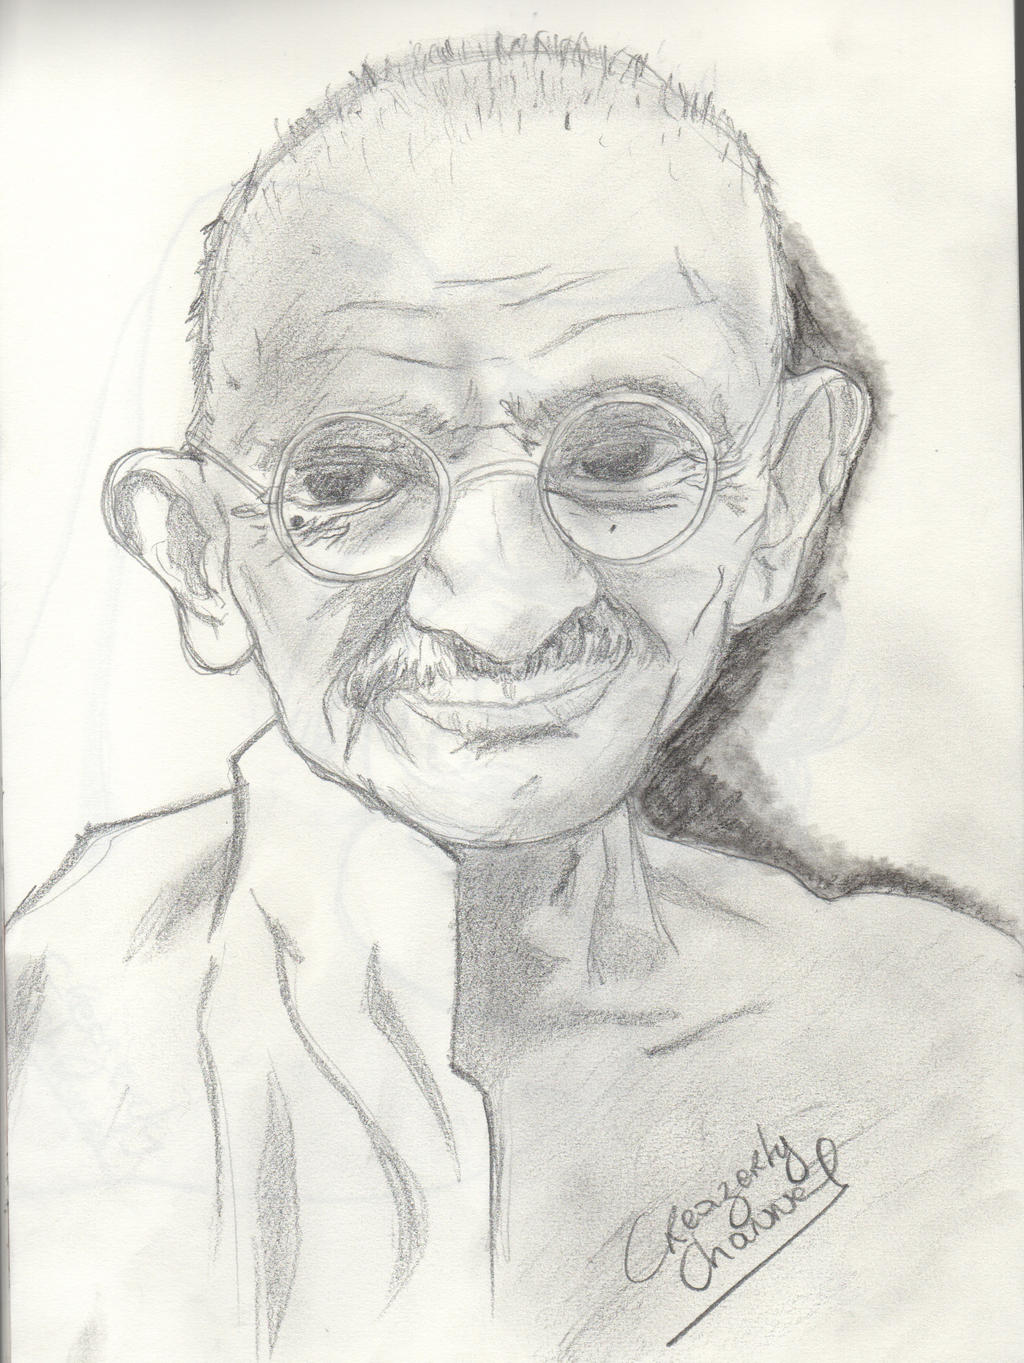 Creazerty
Channel